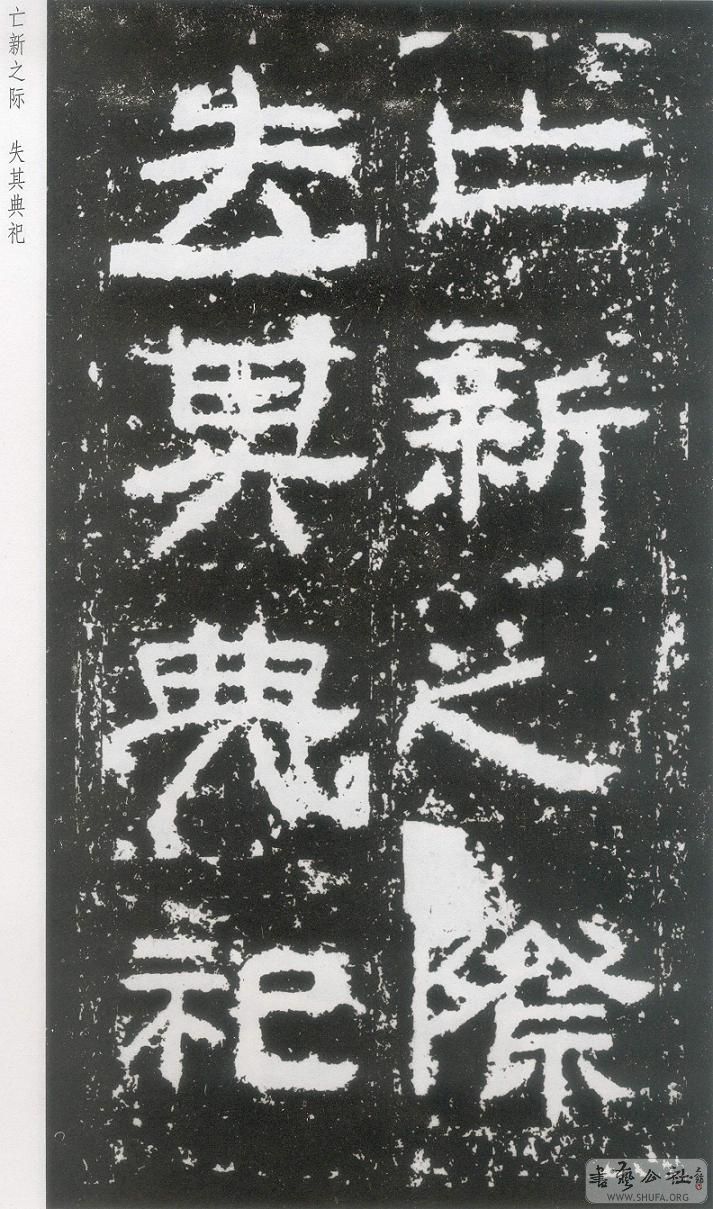 亡新之际 失其典祀
亡新之際
失其典祀
書藝公社
WWW.SHUFA.ORG